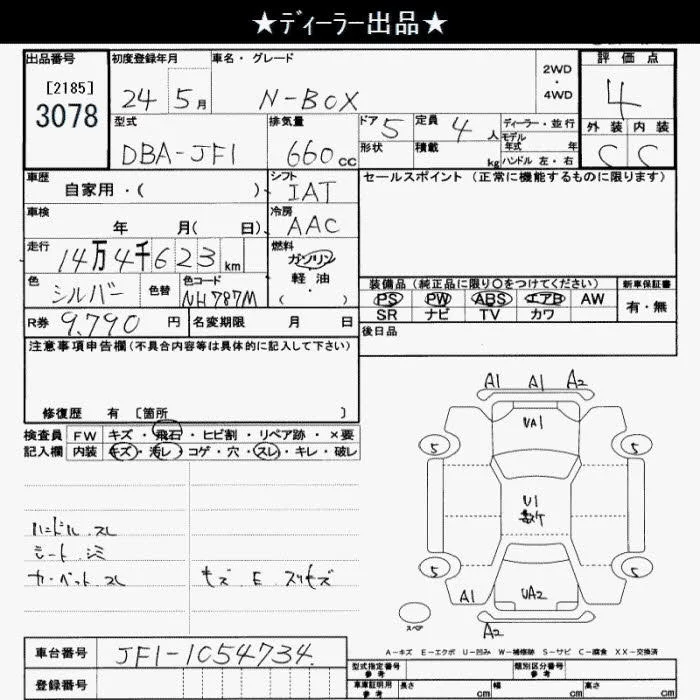 ★ディーラー出品★
出品番号 初度登録年月 車名・グレード 2WD・4WD 評価点
[2185]
3078 24 5月 N-BOX 4
型式 排気量 ドア 5 定員 4人 ディーラー・並行 外装 内装
DBA-JF1 660cc 形状 積載 kg モデル年式 年 C C
ハンドル 左・右
車歴 シフト セールスポイント (正常に機能するものに限ります)
自家用・( ) IAT
車検 冷房
年 月( 日) AAC
走行 燃料
14万4千623km ガソリン
軽油
・
( )
色 色替 色コード 装備品 (純正品に限り○をつけてください) 新車保証書
シルバー NH787M PS PW ABS エアB AW 有・無
R券 9.790 円 名変期限 月 日 SR ナビ TV カワ
後日品
注意事項申告欄(不具合内容等は具体的に記入して下さい)
修復歴 有 〔箇所 〕
検査員 FW キズ・飛石・ヒビ割・リペア跡・×要
記入欄 内装 キズ・汚レ・コゲ・穴・スレ・キレ・破レ
A1 A1 A2
UA1
5 5
ハンドル スレ
シート シミ
カーペット スレ
キズ E スリキズ
U1
数ケ
5 5
A1 UA2
スペア
A2
A-キズ E-エクボ U-凹み W-補修跡 S-サビ C-腐食 XX-交換済
車台番号 JF1-1054734.
登録番号
型式指定番号 参考 類別区分番号 参考
車庫証明用 参考 長さ cm 幅 cm 高さ cm